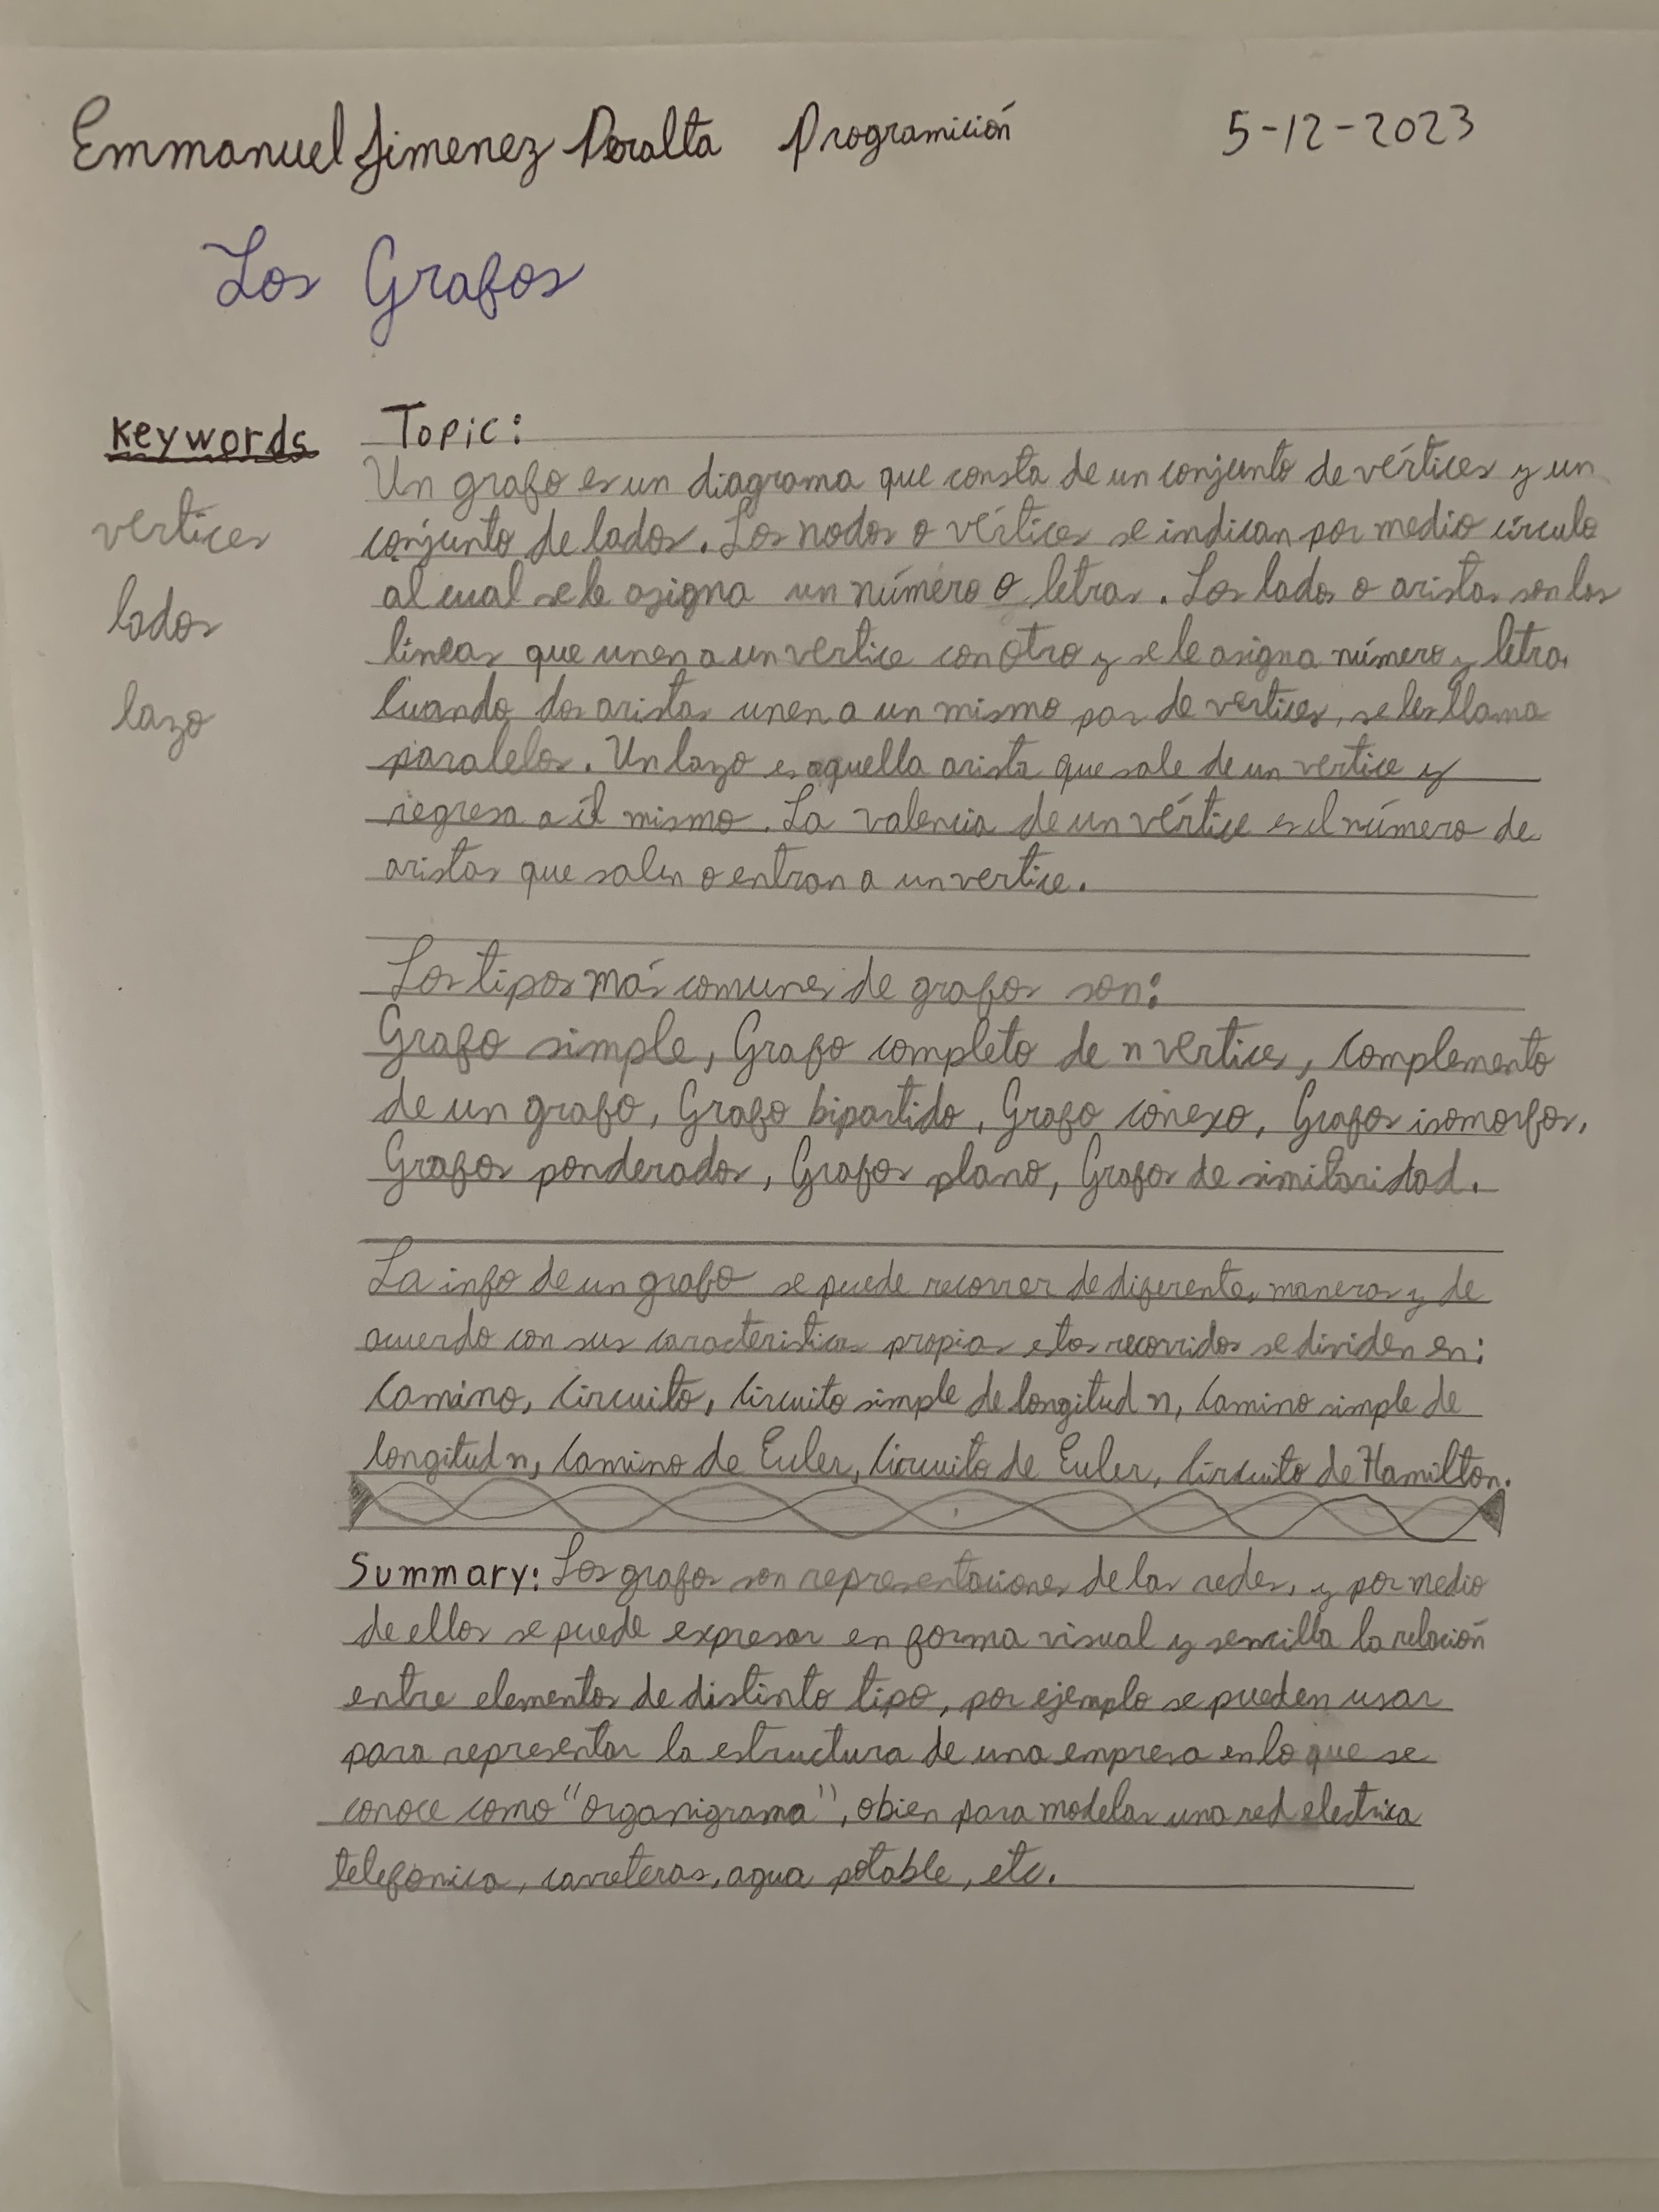 Emmanuel Jimenez Peralta Programición 5-12-2023
Los Grafos
Keywords
vertices
lados
lazo
Topic:
Un grafo es un diagrama que consta de un conjunto de vértices y un
conjunto de lados. Los nodos o vértices se indican por medio círculo
al cual se le asigna un número o letras. Los lados o aristas son las
líneas que unen a un vertice con otro y se le asigna número y letra.
Cuando dos aristas unen a un mismo par de vertices, se les llama
paralelos. Un lazo es aquella arista que sale de un vertice y
regresa a él mismo. La valencia de un vértice es el número de
aristas que salen o entran a un vertice.
Los tipos más comunes de grafos son:
Grafo simple, Grafo completo de n vertices, Complemento
de un grafo, Grafo bipartido, Grafo conexo, Grafos isomorfos,
Grafos ponderados, Grafos plano, Grafos de similaridad.
La info de un grafo se puede recorrer de diferentes maneras y de
acuerdo con sus caracteristicas propias estos recorridos se dividen en:
Camino, Circuito, Circuito simple de longitud n, Camino simple de
longitud n, Camino de Euler, Circuito de Euler, Circuito de Hamilton.
Summary: Los grafos son representaciones de las redes, y por medio
de ellos se puede expresar en forma visual y sencilla la relación
entre elementos de distinto tipo, por ejemplo se pueden usar
para representar la estructura de una empresa en lo que se
conoce como "organigrama", o bien para modelar una red electrica
telefonica, carreteras, agua potable, etc.